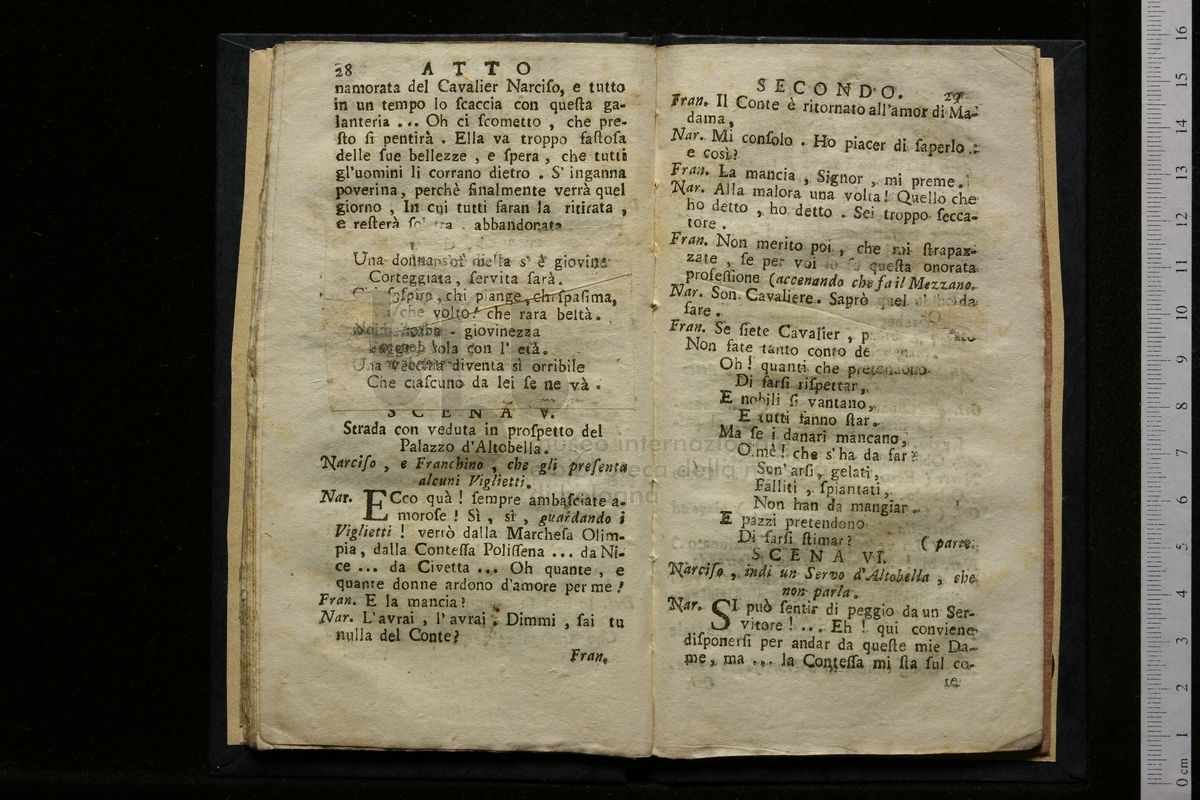 28 ATTO
namorata del Cavalier Narciſo, e tutto
in un tempo lo ſcaccia con queſta ga-
lanteria ... Oh ci ſcometto , che pre-
ſto ſi pentirà . Ella va troppo faſtoſa
delle ſue bellezze , e ſpera , che tutti
gl'uomini li corrano dietro . S' inganna
poverina, perchè finalmente verrà quel
giorno , In cui tutti ſaran la ritirata ,
e reſterà abbandonata
Una s' è giovine
Corteggiata, ſervita ſarà.
chi piange, chi ſpaſima,
che volto! che rara beltà.
giovinezza
vola con l' età.
Una vecchia diventa sì orribile
Che ciaſcuno da lei ſe ne và .
SCENA V.
Strada con veduta in proſpetto del
Palazzo d'Altobella.
Narciſo , e Franchino , che gli preſenta
alcuni Viglietti.
Nar. ECco quà ! ſempre ambaſciate a-
moroſe ! Sì , sì , guardando i
Viglietti ! verrò dalla Marcheſa Olim-
pia, dalla Conteſſa Poliſſena ... da Ni-
ce ... da Civetta ... Oh quante , e
quante donne ardono d'amore per me !
Fran. E la mancia?
Nar. L'avrai , l'avrai . Dimmi , ſai tu
nulla del Conte?
Fran.
SECONDO. 29
Fran. Il Conte è ritornato all'amor di Ma-
dama,
Nar. Mi conſolo . Ho piacer di ſaperlo .:
e così?
Fran. La mancia , Signor , mi preme.
Nar. Alla malora una volta! Quello che
ho detto , ho detto . Sei troppo ſecca-
tore .
Fran. Non merito poi , che mi ſtrapaz-
zate , ſe per voi queſta onorata
profeſſione (accenando che fa il Mezzano.
Nar. Son Cavaliere. Saprò quel da
fare .
Fran. Se ſiete Cavalier ,
Non fate tanto conto
Oh! quanti che pretendono
Di farſi riſpettar,
E nobili ſi vantano,
E tutti fanno ſtar.
Ma ſe i danari mancano,
Oimè! che s'ha da far?
Son'arſi, gelati,
Falliti , ſpiantati,
Non han da mangiar .
E pazzi pretendono
Di farſi ſtimar? ( parte.
SCENA VI.
Narciſo , indi un Servo d'Altobella , che
non parla.
Nar. SI può ſentir di peggio da un Ser-
vitore ! ... Eh ! qui conviene
diſponerſi per andar da queſte mie Da-
me, ma ... la Conteſſa mi ſta ſul co-